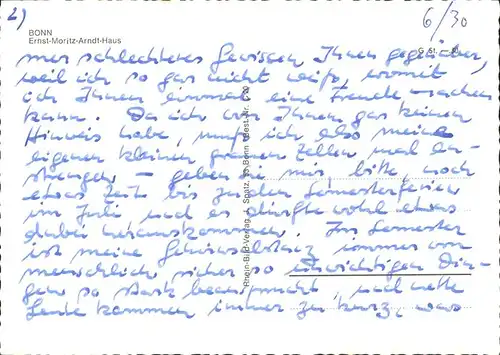 2)
6/30
BONN
Ernst-Moritz-Arndt-Haus
mer schlechteres Gewissen Ihnen gegenüber,
weil ich so gar nicht weiß, womit
ich Ihnen einmal eine Freude machen
kann. Da ich von Ihnen gar keinen
Hinweis habe, muß ich also meine
eigenen kleinen grauen Zellen mal an-
strengen – geben Sie mir bitte, noch
etwas Zeit bis zu den Semesterferien
im Juli und es dürfte wohl etwas
dabei herauskommen. Im Semester
ist meine Gehirnsubstanz immer von
menschlich sicher so unwichtigen Din-
gen so stark beansprucht, und nette
Leute kommen immer zu kurz, was
Rhein-Bild-Verlag, J. Spatz, 53 Bonn